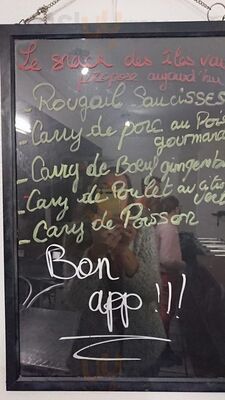 Le snack des îles vous
propose aujourd'hui
- Rougail Saucisses
- Carry de porc au Pois
gourmand
- Carry de Boeuf gingembr
- Cary de Poulet au citron
vert
- Cary de Poisson
Bon
app !!!